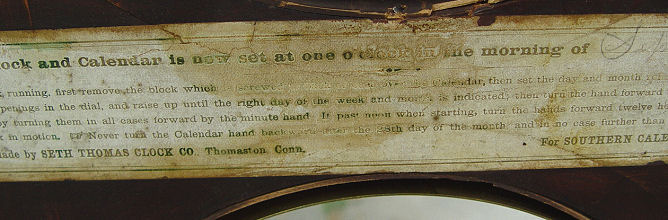 lock and Calendar is now set at one o'clock in the morning of
running, first remove the block which is screwed over the Calendar, then set the day and month
openings in the dial, and raise up until the right day of the week and month is indicated; then turn the hand forward
by turning them in all cases forward by the minute hand. If past noon when starting, turn the hands forward twelve
in motion. ☞ Never turn the Calendar hand backward after the 28th day of the month, and in no case further than
made by SETH THOMAS CLOCK CO. Thomaston, Conn. For SOUTHERN CALE